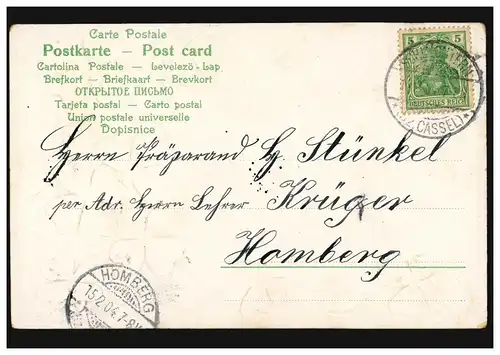 Carte Postale
Postkarte — Post card
Cartolina Postale — Levelező-Lap
Brefkort — Briefkaart — Brevkort
ОТКРЫТОЕ ПИСЬМО
Tarjeta postal — Carto postal
Union postale universelle
Dopisnice
5 5
DEUTSCHES REICH
(CASSEL)
Herrn Präparand H. Stünkel
per Adr. Herrn Lehrer Krüger
Homberg
HOMBERG
15.2.04. 7-8V.